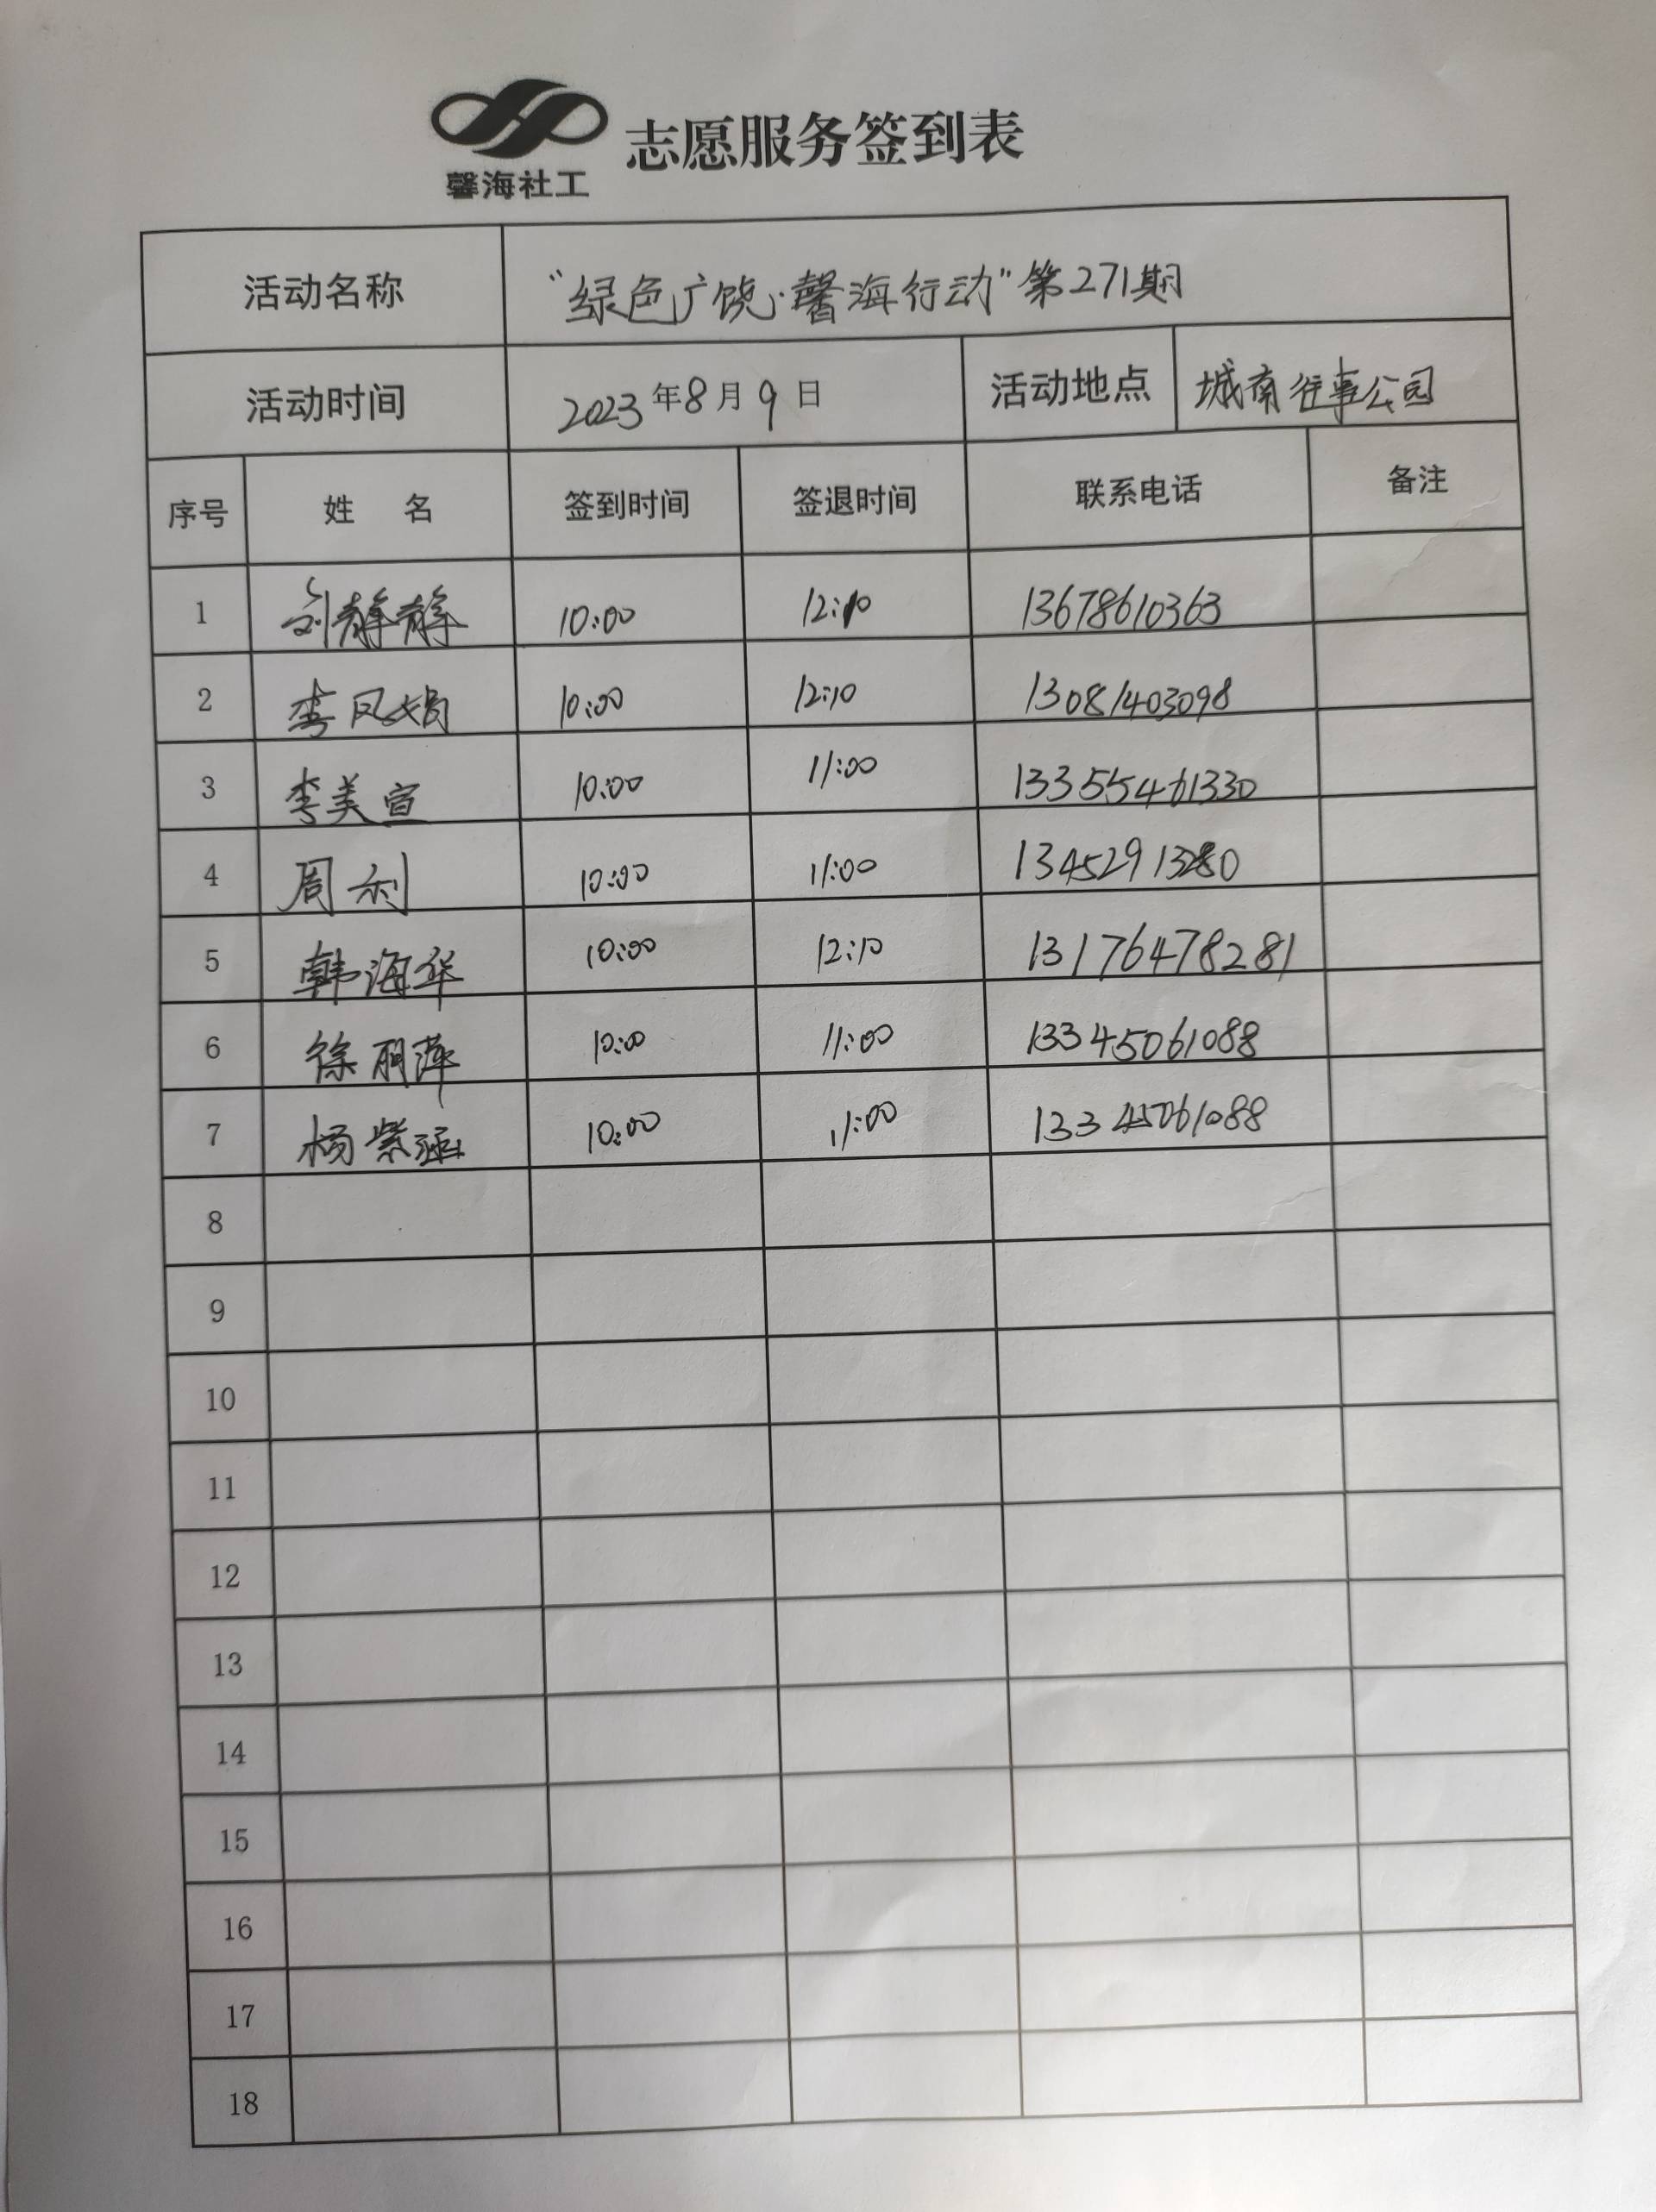 馨海社工 志愿服务签到表
活动名称 “绿色广饶·馨海行动”第271期
活动时间 2023年8月9日 活动地点 城南往事公园
序号 姓 名 签到时间 签退时间 联系电话 备注
1 刘静静 10:00 12:10 13678610363
2 李凤娟 10:00 12:10 13081403098
3 李美宣 10:00 11:00 13355461330
4 周利 10:00 11:00 13452913280
5 韩海华 10:00 12:10 13176478281
6 徐丽萍 10:00 11:00 13345061088
7 杨紫涵 10:00 11:00 13345061088
8
9
10
11
12
13
14
15
16
17
18